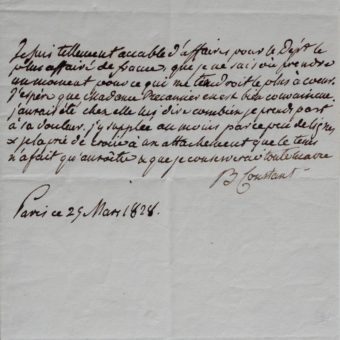 Je suis tellement accablé d'affaires pour le Dépt le
plus affairé de france, que je ne sais où prendre
un moment pour ce qui me tiendroit le plus à coeur.
J'espère que Madame Recamier en est bien convaincue
j'aurais été chez elle lui dire combien je prends part
à sa douleur. j'y supplée au moins par ce peu de lignes
& je la prie de croire à un attachement que le tems
n'a fait qu'accroître & que je conserverai toute ma vie
B Constant
Paris ce 29 Mars 1828.